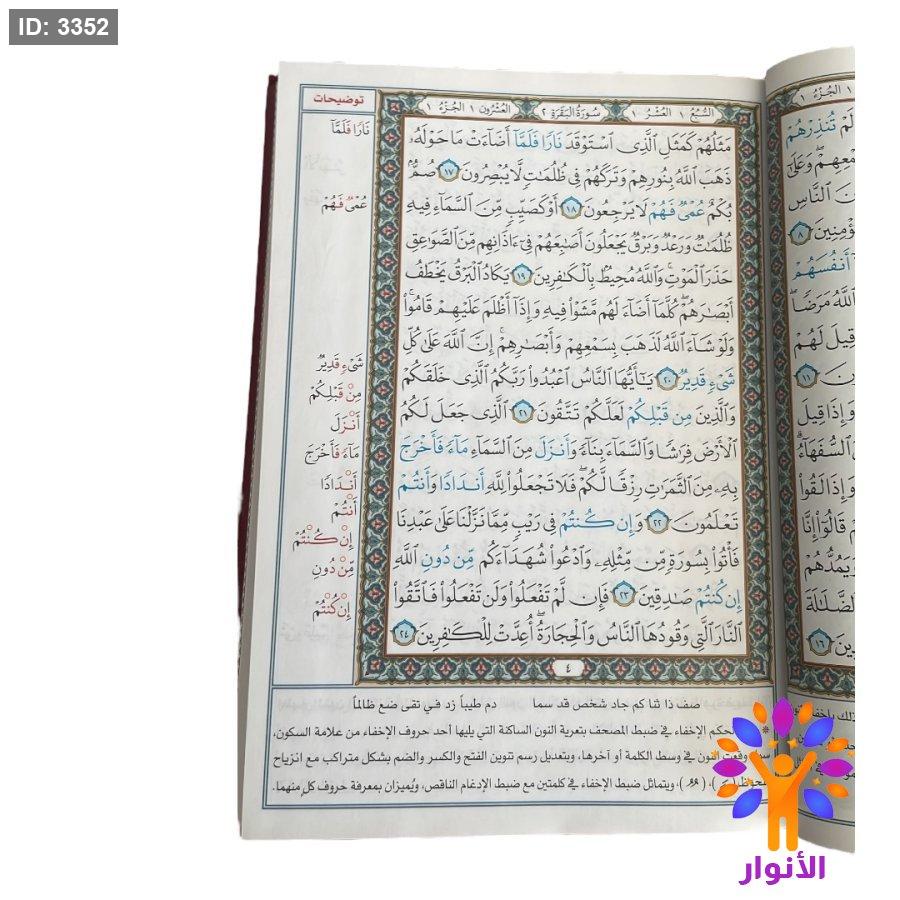 ID: 3352
توضيحات
السُّبُعُ ١ العُشْرُ ١ سُورَةُ البَقَرَةِ ٢ العُشْرُونَ ١ الجُزْءُ ١
مَثَلُهُمْ كَمَثَلِ ٱلَّذِى ٱسْتَوْقَدَ نَارًا فَلَمَّآ أَضَآءَتْ مَا حَوْلَهُۥ
ذَهَبَ ٱللَّهُ بِنُورِهِمْ وَتَرَكَهُمْ فِى ظُلُمَٰتٍ لَّا يُبْصِرُونَ ١٧ صُمٌّۢ
بُكْمٌ عُمْىٌ فَهُمْ لَا يَرْجِعُونَ ١٨ أَوْ كَصَيِّبٍ مِّنَ ٱلسَّمَآءِ فِيهِ
ظُلُمَٰتٌ وَرَعْدٌ وَبَرْقٌ يَجْعَلُونَ أَصَٰبِعَهُمْ فِىٓ ءَاذَانِهِم مِّنَ ٱلصَّوَٰعِقِ
حَذَرَ ٱلْمَوْتِ وَٱللَّهُ مُحِيطٌۢ بِٱلْكَٰفِرِينَ ١٩ يَكَادُ ٱلْبَرْقُ يَخْطَفُ
أَبْصَٰرَهُمْ كُلَّمَآ أَضَآءَ لَهُم مَّشَوْا۟ فِيهِ وَإِذَآ أَظْلَمَ عَلَيْهِمْ قَامُوا۟
وَلَوْ شَآءَ ٱللَّهُ لَذَهَبَ بِسَمْعِهِمْ وَأَبْصَٰرِهِمْ إِنَّ ٱللَّهَ عَلَىٰ كُلِّ
شَىْءٍ قَدِيرٌ ٢٠ يَٰٓأَيُّهَا ٱلنَّاسُ ٱعْبُدُوا۟ رَبَّكُمُ ٱلَّذِى خَلَقَكُمْ
وَٱلَّذِينَ مِن قَبْلِكُمْ لَعَلَّكُمْ تَتَّقُونَ ٢١ ٱلَّذِى جَعَلَ لَكُمُ
ٱلْأَرْضَ فِرَٰشًا وَٱلسَّمَآءَ بِنَآءً وَأَنزَلَ مِنَ ٱلسَّمَآءِ مَآءً فَأَخْرَجَ
بِهِۦ مِنَ ٱلثَّمَرَٰتِ رِزْقًا لَّكُمْ فَلَا تَجْعَلُوا۟ لِلَّهِ أَندَادًا وَأَنتُمْ
تَعْلَمُونَ ٢٢ وَإِن كُنتُمْ فِى رَيْبٍ مِّمَّا نَزَّلْنَا عَلَىٰ عَبْدِنَا
فَأْتُوا۟ بِسُورَةٍ مِّن مِّثْلِهِۦ وَٱدْعُوا۟ شُهَدَآءَكُم مِّن دُونِ ٱللَّهِ
إِن كُنتُمْ صَٰدِقِينَ ٢٣ فَإِن لَّمْ تَفْعَلُوا۟ وَلَن تَفْعَلُوا۟ فَٱتَّقُوا۟
ٱلنَّارَ ٱلَّتِى وَقُودُهَا ٱلنَّاسُ وَٱلْحِجَارَةُ أُعِدَّتْ لِلْكَٰفِرِينَ ٢٤
٤
نَارًا فَلَمَّآ
عُمْىٌ فَهُمْ
شَىْءٍ قَدِيرٌ
مِنْ قَبْلِكُمْ
أَنْزَلَ
مَآءً فَأَخْرَجَ
أَنْدَادًا
أَنْتُمْ
إِنْ كُنْتُمْ
مِّنْ دُونِ
إِنْ كُنْتُمْ
صف ذا ثنا كم جاد شخص قد سما دم طيباً زد في تقى ضع ظالماً
حكم الإخفاء في ضبط المصحف بتعرية النون الساكنة التي يليها أحد حروف الإخفاء من علامة السكون،
وقعت النون في وسط الكلمة أو آخرها، وبتعديل رسم تنوين الفتح والكسر والضم بشكل متراكب مع انزياح
ملحوظ، ويتماثل ضبط الإخفاء في كلمتين مع ضبط الإدغام الناقص، ويُميزان بمعرفة حروف كلٍ منهما.
الجُزْءُ ١
لَمْ تُنذِرْهُمْ
وَعَلَىٰ
ٱلنَّاسِ
٨
أَنفُسَهُمْ
ٱللَّهُ مَرَضًا
قِيلَ لَهُمْ
١١
وَإِذَا قِيلَ
ٱلسُّفَهَآءُ
وَإِذَا لَقُوا۟
قَالُوٓا۟ إِنَّا
وَيَمُدُّهُمْ
ٱلضَّلَٰلَةَ
١٦
الأنوار